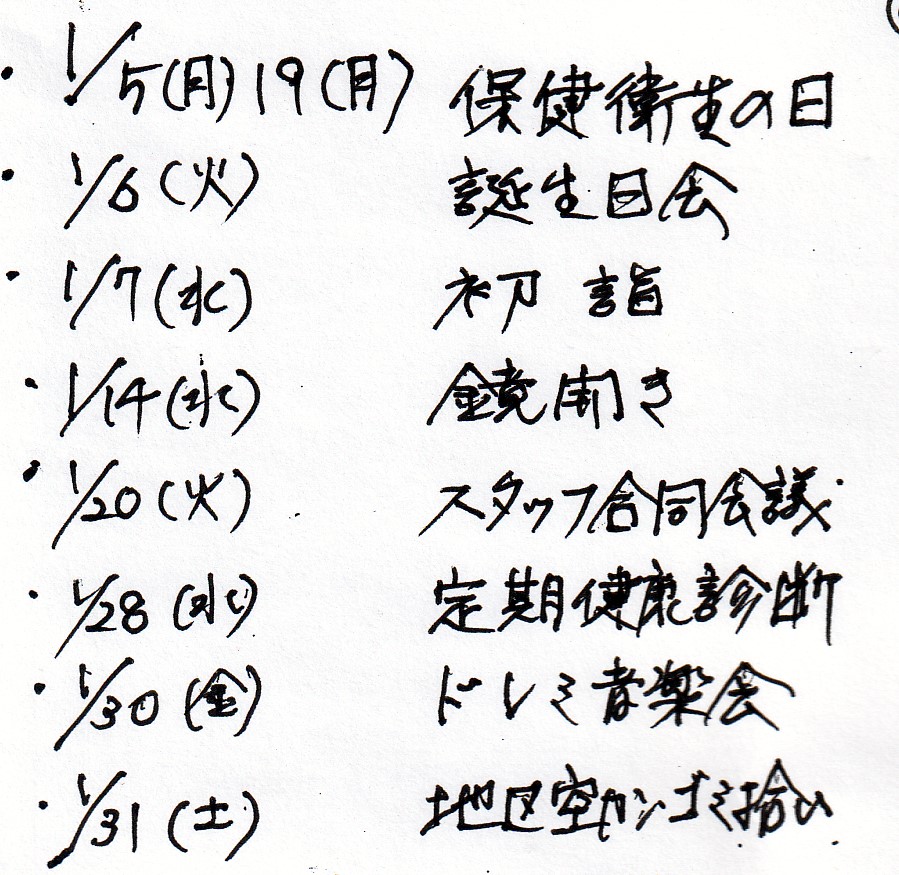 ・1/5(月)19(月) 保健衛生の日
・1/6(火) 誕生日会
・1/7(水) 初詣
・1/14(水) 鏡開き
・1/20(火) スタッフ合同会議
・1/28(水) 定期健康診断
・1/30(金) ドレミ音楽会
・1/31(土) 地区空カンゴミ拾い